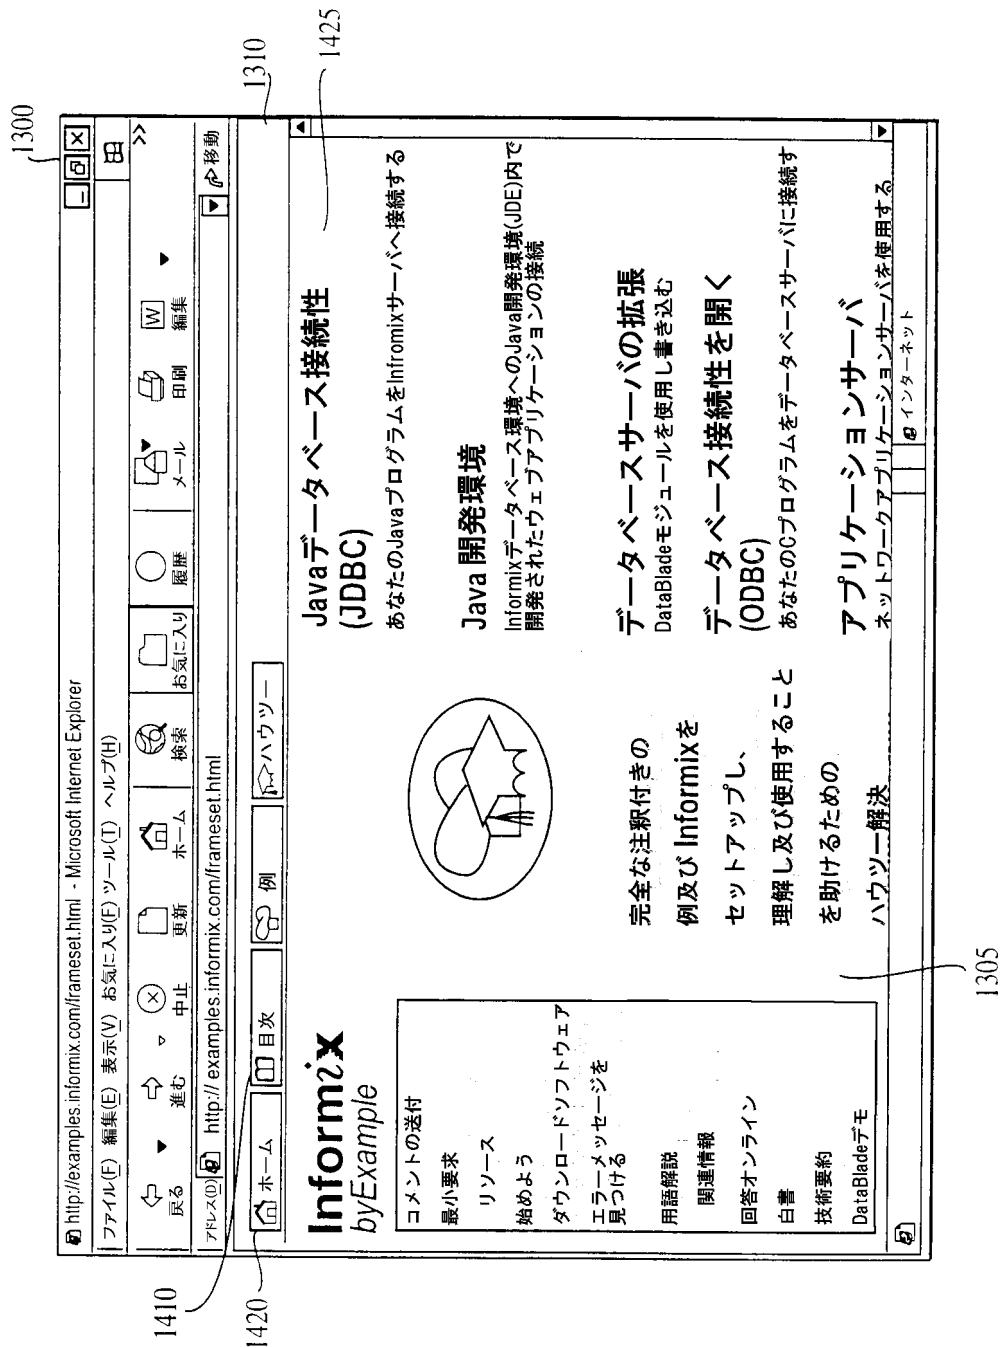 1300
http://examples.informix.com/frameset.html - Microsoft Internet Explorer
ファイル(F) 編集(E) 表示(V) お気に入り(F) ツール(T) ヘルプ(H)
戻る 進む 中止 更新 ホーム 検索 お気に入り 履歴 メール 印刷 編集
>>
W
アドレス(D) http:// examples.informix.com/frameset.html 移動
1310
1410
1420
ホーム 目次 例 ハウツー
1425
Informix
byExample
コメントの送付
最小要求
リソース
始めよう
ダウンロードソフトウェア
エラーメッセージを
見つける
用語解説
関連情報
回答オンライン
白書
技術要約
DataBladeデモ
完全な注釈付きの
例及び Informixを
セットアップし、
理解し及び使用すること
を助けるための
ハウツー解決
1305
Javaデータベース接続性
(JDBC)
あなたのJavaプログラムをInfromixサーバへ接続する
Java 開発環境
Informixデータベース環境へのJava開発環境(JDE)内で
開発されたウェブアプリケーションの接続
データベースサーバの拡張
DataBladeモジュールを使用し書き込む
データベース接続性を開く
(ODBC)
あなたのCプログラムをデータベースサーバに接続す
アプリケーションサーバ
ネットワークアプリケーションサーバを使用する
インターネット